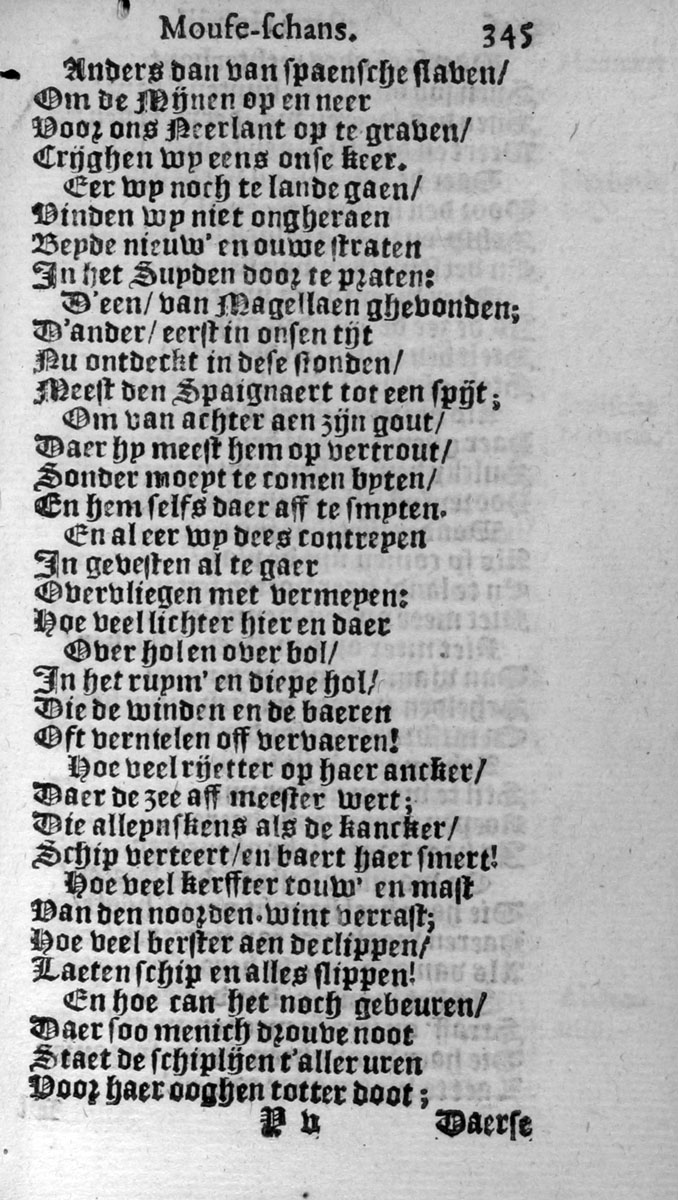 Mouſe-ſchans. 345
Anders dan van ſpaenſche ſlaven/
Om de Mijnen op en neer
Voor ons Neerlant op te graven/
Crijghen wy eens onſe keer.
Eer wy noch te lande gaen/
Vinden wy niet ongheraen
Beyde nieuw' en ouwe ſtraten
In het Suyden door te praten:
D'een/ van Magellaen ghevonden;
D'ander/ eerſt in onſen tijt
Nu ontdeckt in deſe ſtonden/
Meeſt den Spaignaert tot een ſpijt;
Om van achter aen zijn gout/
Daer hy meeſt hem op vertrout/
Sonder moeyt te comen byten/
En hem ſelfs daer aff te ſmyten.
En al eer wy dees contreyen
In geveſten al te gaer
Overvliegen met vermeyen:
Hoe veel lichter hier en daer
Over hol en over bol/
In het ruym' en diepe hol/
Die de winden en de baeren
Oft vernielen off vervaeren!
Hoe veel rijetter op haer ancker/
Daer de zee aff meeſter wert;
Die alleynſkens als de kancker/
Schip verteert/en baert haer ſmert!
Hoe veel kerffter touw' en maſt
Van den noorden-wint verraſt;
Hoe veel berſter aen de clippen/
Laeten ſchip en alles ſlippen!
En hoe can het noch gebeuren/
Daer ſoo menich drouve noot
Staet de ſchiplijen t'aller uren
Voor haer ooghen totter doot;
P v Daerſe